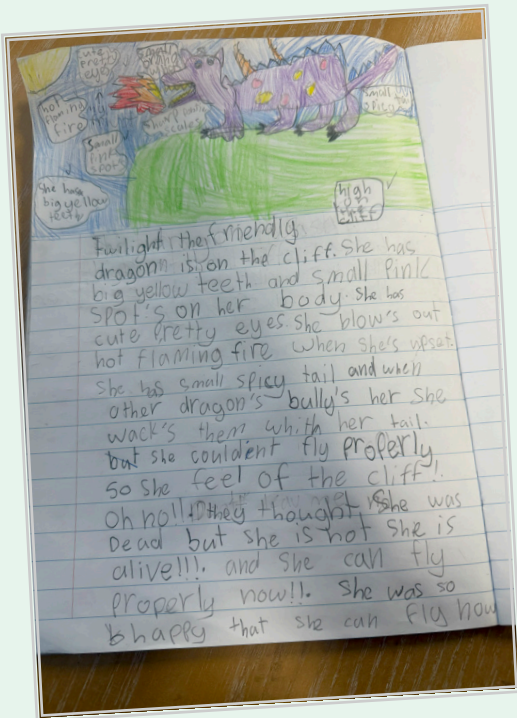 cute
pretty
eyes
small
hot
flaming
fire
small
Pink
spots
scales
small
She has
big yellow
teeth
high
cliff
Twilight the friendly
dragon is on the cliff. She has
big yellow teeth and small Pink
spot's on her body. She has
cute Pretty eyes. She blow's out
hot flaming fire when she's upset.
She has small spicy tail and when
other dragon's bully's her She
wack's them whith her tail.
but she could'ent fly properly
So She feel of the cliff!
Oh no!! they thought She was
Dead but she is not She is
alive!!!. and She can fly
properly now!!. She was so
happy that she can fly now